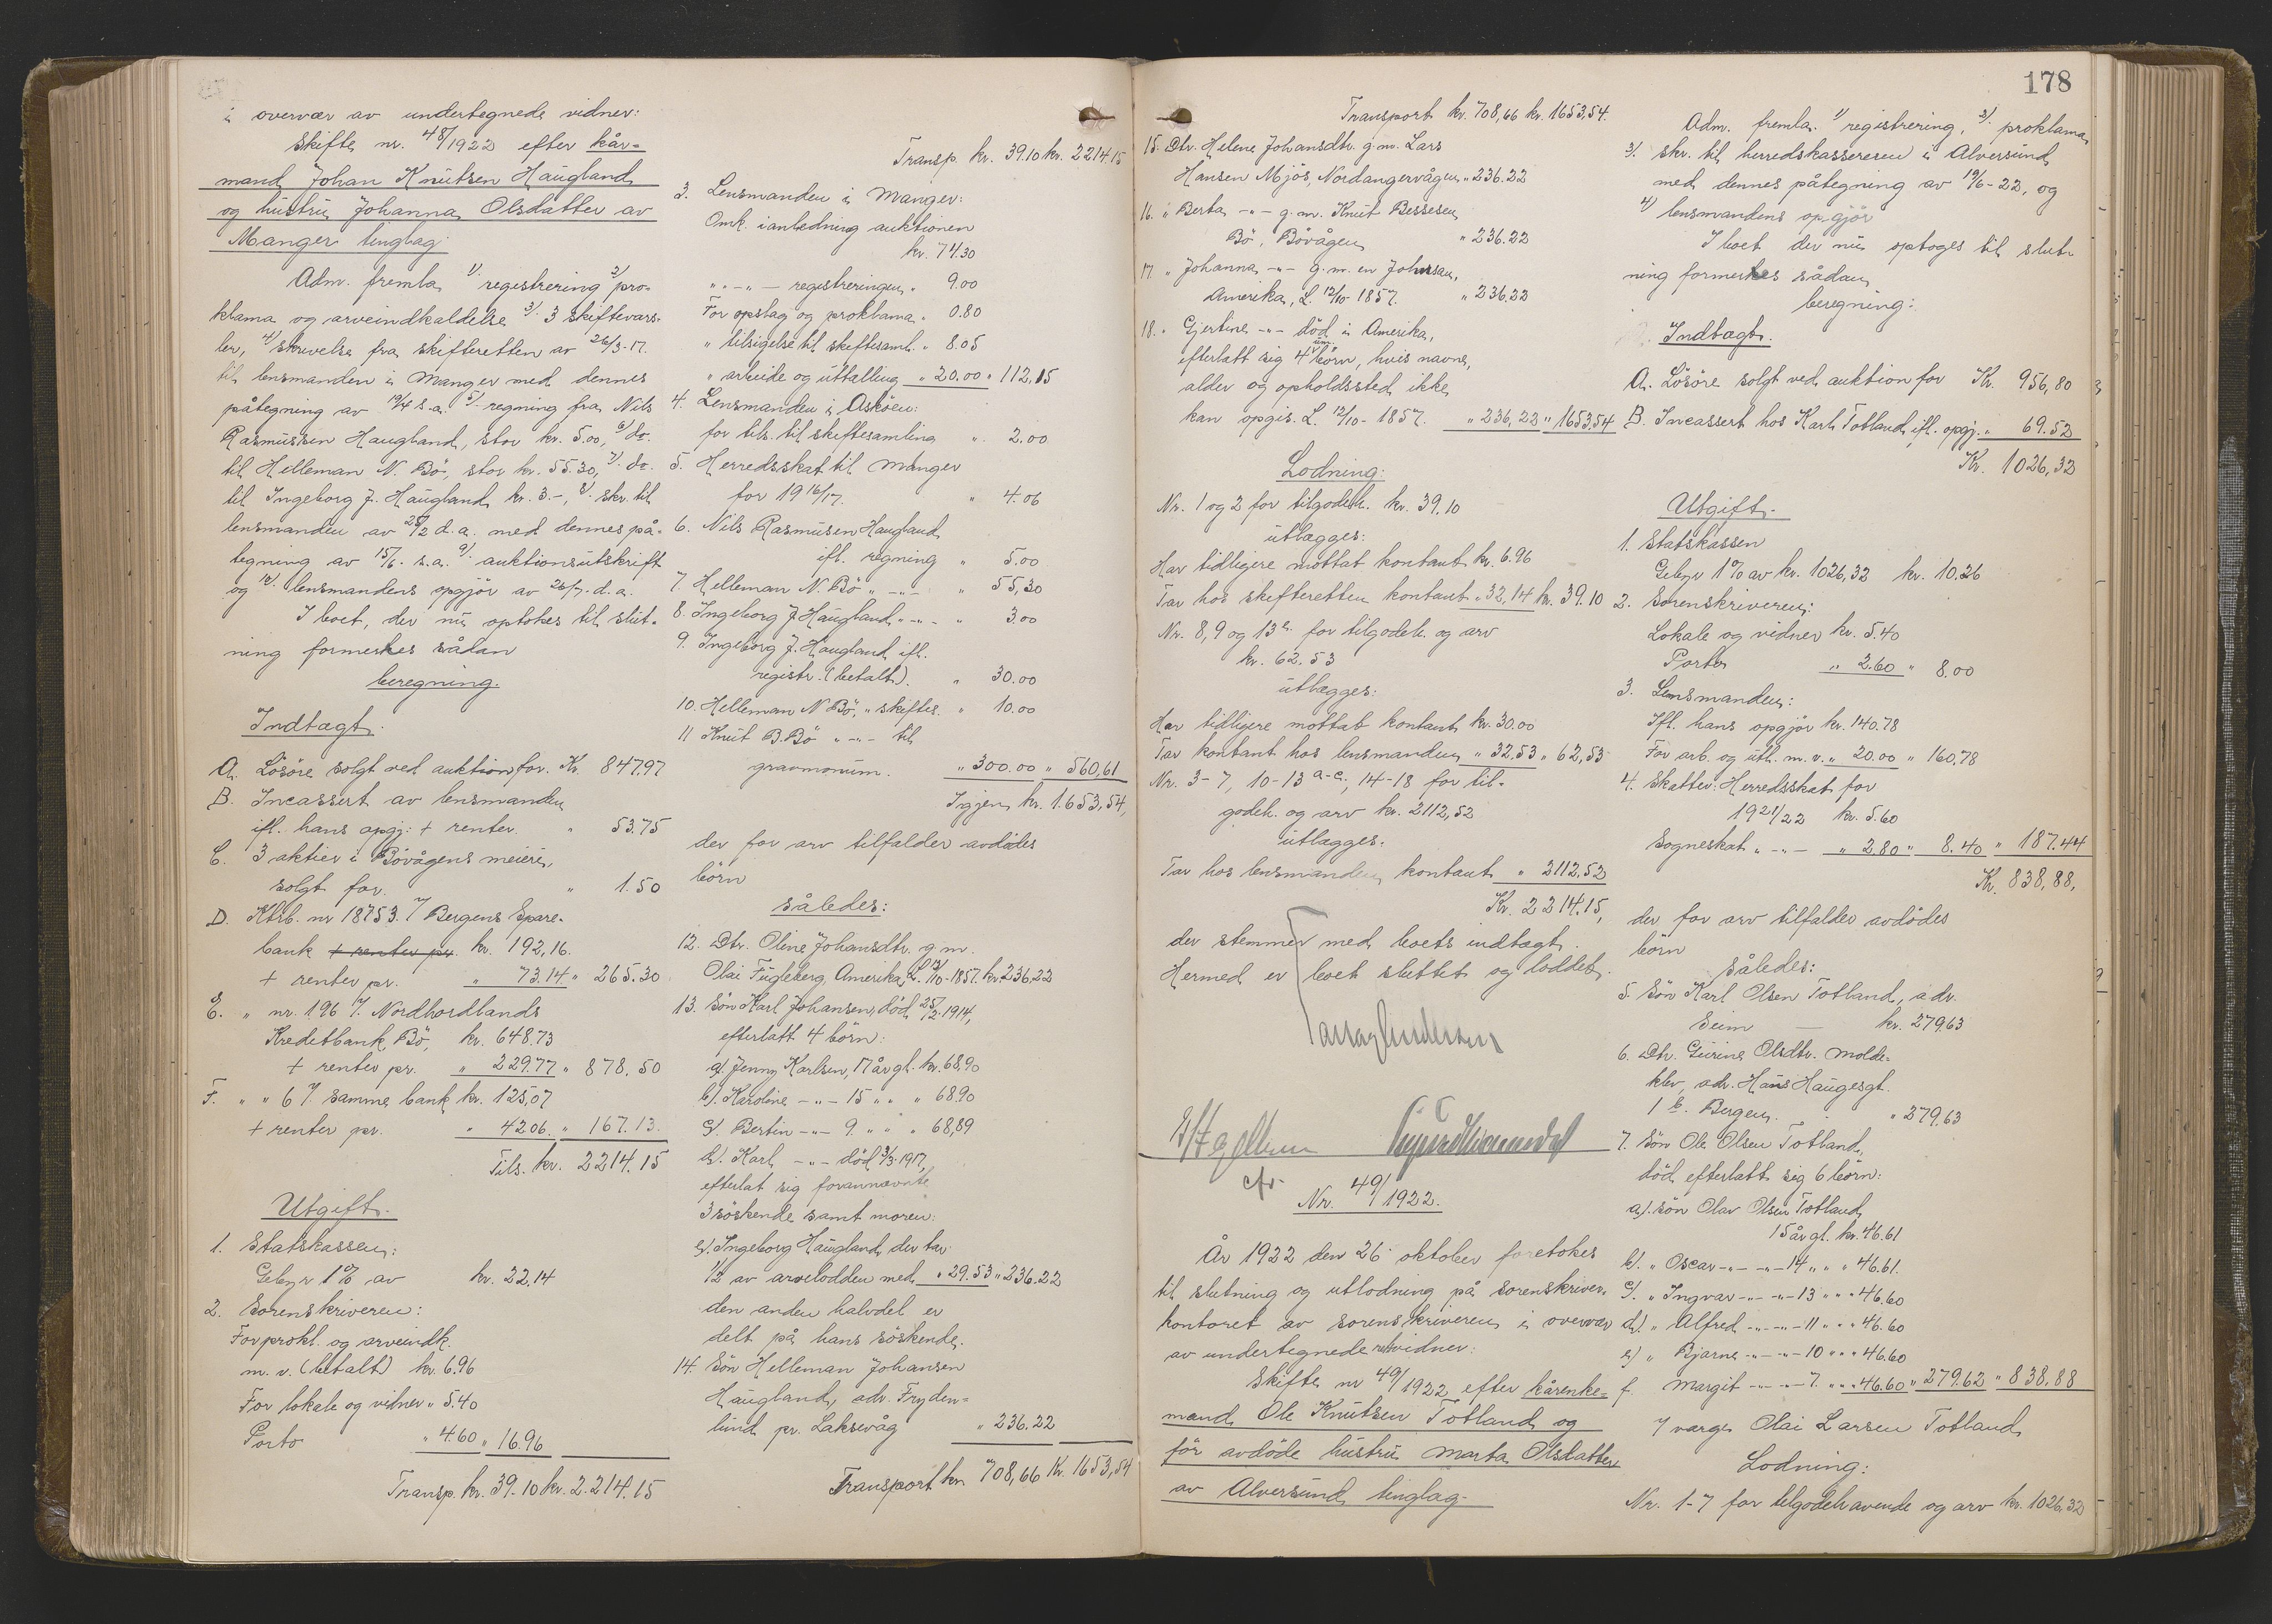 i overvær av undertegnede vidner:
Skifte nr. 48/1922 efter kår-
mand Johan Knutsen Haugland
og hustru Johanna Olsdatter av
Manger tinglag.
Adm. fremla 1/. registrering 2/ pro-
klama og arveindkaldelse 3/. 3 skiftevars-
ler, 4/ skrivelse fra skifteretten av 26/3-17.
til lensmanden i Manger med dennes
påtegning av 19/4 s.a. 5/. regning fra Nils
Rasmussen Haugland, stor kr. 5.00, 6/ do.
til Helleman N. Bö, stor kr. 55.30, 7/. do.
til Ingeborg J. Haugland kr. 3.-, 8/. skr. til
lensmanden av 25/2 d.a. med dennes på-
tegning av 15/6. s.a. 9/. auktionsutskrift
og 10/. lensmandens opgjör av 26/7. d.a.
I boet, der nu optokes til slut-
ning formerkes sådan
beregning.
Indtægt.
A. Lösöre solgt ved auktion for. Kr. 847.97
B. Incassert av lensmanden
ifl. hans opgj: + renter. " 53.75
C. 3 aktier i Bövågens meieri,
solgt for. " 1.50
D. Ktrb. nr 18753. 7/ Bergens Spare-
bank + renter pr. kr. 192,16.
+ renter pr. " 73.14 " 265.30
E. " nr. 196 7/. Nordhordlands
Kredetbank, Bö, kr. 648.73
+ renter pr. " 229.77 " 878.50
F. " " 6 7/. samme bank kr. 125,07
+ renter pr. " 42.06. " 167.13.
Tils. kr. 2214.15
Utgift.
1. Statskassen:
Gebyr 1% av kr. 22.14
2. Sorenskriveren:
For prokl. og arveindk.
m.v. (betalt) kr. 6.96
For lokale og vidner " 5.40
Porto " 4.60 " 16.96
Transp. kr. 39.10 kr. 2.214.15
Transp. kr. 39.10 kr. 2214.15
3. Lensmanden i Manger:
Omk. i anledning auktionen
kr. 74.30
" " -"- registreringen " 9.00
For opslag og proklama " 0.80
" tilsigelse til skiftesaml. " 8.05
" arbeide og uttælling " 20.00 " 112,15
4. Lensmanden i Asköen:
for tils. til skiftesamling " 2.00
5. Herredsskat til Manger
for 1916/17. " 4.06
6. Nils Rasmusen Haugland
ifl. regning " 5.00
7. Helleman N. Bö " -"- " 55,30
8. Ingeborg J. Haugland " -"- " 3.00
9. Ingeborg J. Haugland ifl.
registr. (betalt). " 30.00
10. Helleman N. Bö, " skiftes. " 10.00
11 Knut B. Bö " -"- til
gravmonum. " 300.00 " 560,61
Igjen kr. 1.653,54,
der for arv tilfalder avdödes
börn
således:
12. Dtr. Oline Johansdtr. g.m.
Olai Fugleberg, Amerika, L. 12/10-1857. kr. 236.22
13. Sön Karl Johansen, död 25/2. 1914,
efterlatt 4 börn:
a/. Jenny Karlsen, 17 år gl. kr. 68,90
b/. Karoline -"- 15 " " " 68.90
c/. Bertin -"- 9. " " " 68,89
d/. Karl -"- död 3/3. 1917,
efterlat sig forannævnte
3 söskende samt moren:
e/. Ingeborg Haugland, der tar
1/2 av arvelodden med " 29.53 " 236.22
den anden halvdel er
delt på hans söskende.
14. Sön Helleman Johansen
Haugland, adr. Fryden-
lund pr. Laksevåg " 236.22
Transport kr. 708,66 Kr. 1653,54
178
Transport kr. 708,66 kr. 1653,54.
15. Dtr. Helene Johansdtr. g.m. Lars
Hansen Mjös, Nordangervågen " 236.22
16. " Berta -"- g.m. Knut Bessesen
Bö, Bövågen " 236.22
17. " Johanna -"- g.m. en Johnsen,
Amerika, L. 12/10 1857. " 236.22
18. " Gjertine -"- död i Amerika,
efterlatt sig 4 um. börn, hvis navne,
alder og opholdssted ikke
kan opgis. L. 12/10-1857. " 236,22 " 1653.54
Lodning:
Nr. 1 og 2 for tilgodeh. kr. 39.10
utlægges:
Har tidligere mottat kontant kr. 6.96
Tar hos skifteretten kontant " 32,14 kr. 39.10
Nr. 8, 9 og 13 e. for tilgodeh. og arv
kr. 62.53
utlægges:
Har tidligere mottat kontant kr. 30.00
Tar kontant hos lensmanden " 32.53 " 62,53
Nr. 3-7, 10-13 a-c., 14-18 for til-
godeh. og arv kr. 2112,52
utlægges:
Tar hos lensmanden kontant " 2112.52
Kr. 2214.15,
der stemmer med boets indtægt.
Hermed er boet sluttet og loddet.
cfr.
Nr. 49/1922.
År 1922 den 26 oktober foretokes
til slutning og utlodning på sorenskriver-
kontoret av sorenskriveren i overvær
av undertegnede vidner:
Skifte nr 49/1922 efter kårenke-
mand Ole Knutsen Totland og
för avdöde hustru Marta Olsdatter
av Alversund tinglag.
Adm. fremla. 1/ registrering, 2/. proklama
3/. skr. til herredskassereren i Alversund
med dennes påtegning av 19/6-22, og
4/ lensmandens opgjör
I boet der nu optoges til slut-
ning formerkes sådan
beregning:
Indtægt.
A. Lösöre solgt ved auktion for Kr. 956,80
B. Incassert hos Karl Totland, ifl. opgj. " 69.52
Kr. 1026,32
Utgift.
1. Statskassen
Gebyr 1% av kr. 1026,32 kr. 10.26
2. Sorenskriveren:
Lokale og vidner kr. 5.40
Porto " 2.60 " 8.00
3. Lensmanden:
Ifl. hans opgjör kr. 140.78
For arb. og utl. m.v. " 20.00 " 160.78
4. Skatter: Herredsskat for
1921/22 kr. 5.60
Sogneskat " -"- " 2.80 " 8.40 " 187.44
Kr. 838,88,
der for arv tilfalder avdödes
börn
således:
5. Sön Karl Olsen Totland, adr.
Seim — kr. 279.63
6. Dtr. Gurine Olsdtr. Molde-
klev, adr. Hans Haugesgt.
1 b. Bergen. " 279.63
7. Sön Ole Olsen Totland,
död, efterlatt sig 6 börn:
a/. sön Olav Olsen Totland
15 år gl. kr. 46.61
b/. " Oscar -"- -"- 14 " " " 46.61.
c/. " Ingvar -"- -"- 13 " " " 46.60
d/. " Alfred -"- -"- 11 " " " 46.60
e/. " Bjarne -"- -"- 10 " " " 46.60
f. Margit -"- -"- 7. " " " 46.60 " 279.62 " 838.88
7/ verge Olai Larsen Totland
Lodning:
Nr. 1-7 for tilgodehavende og arv kr. 1026.32